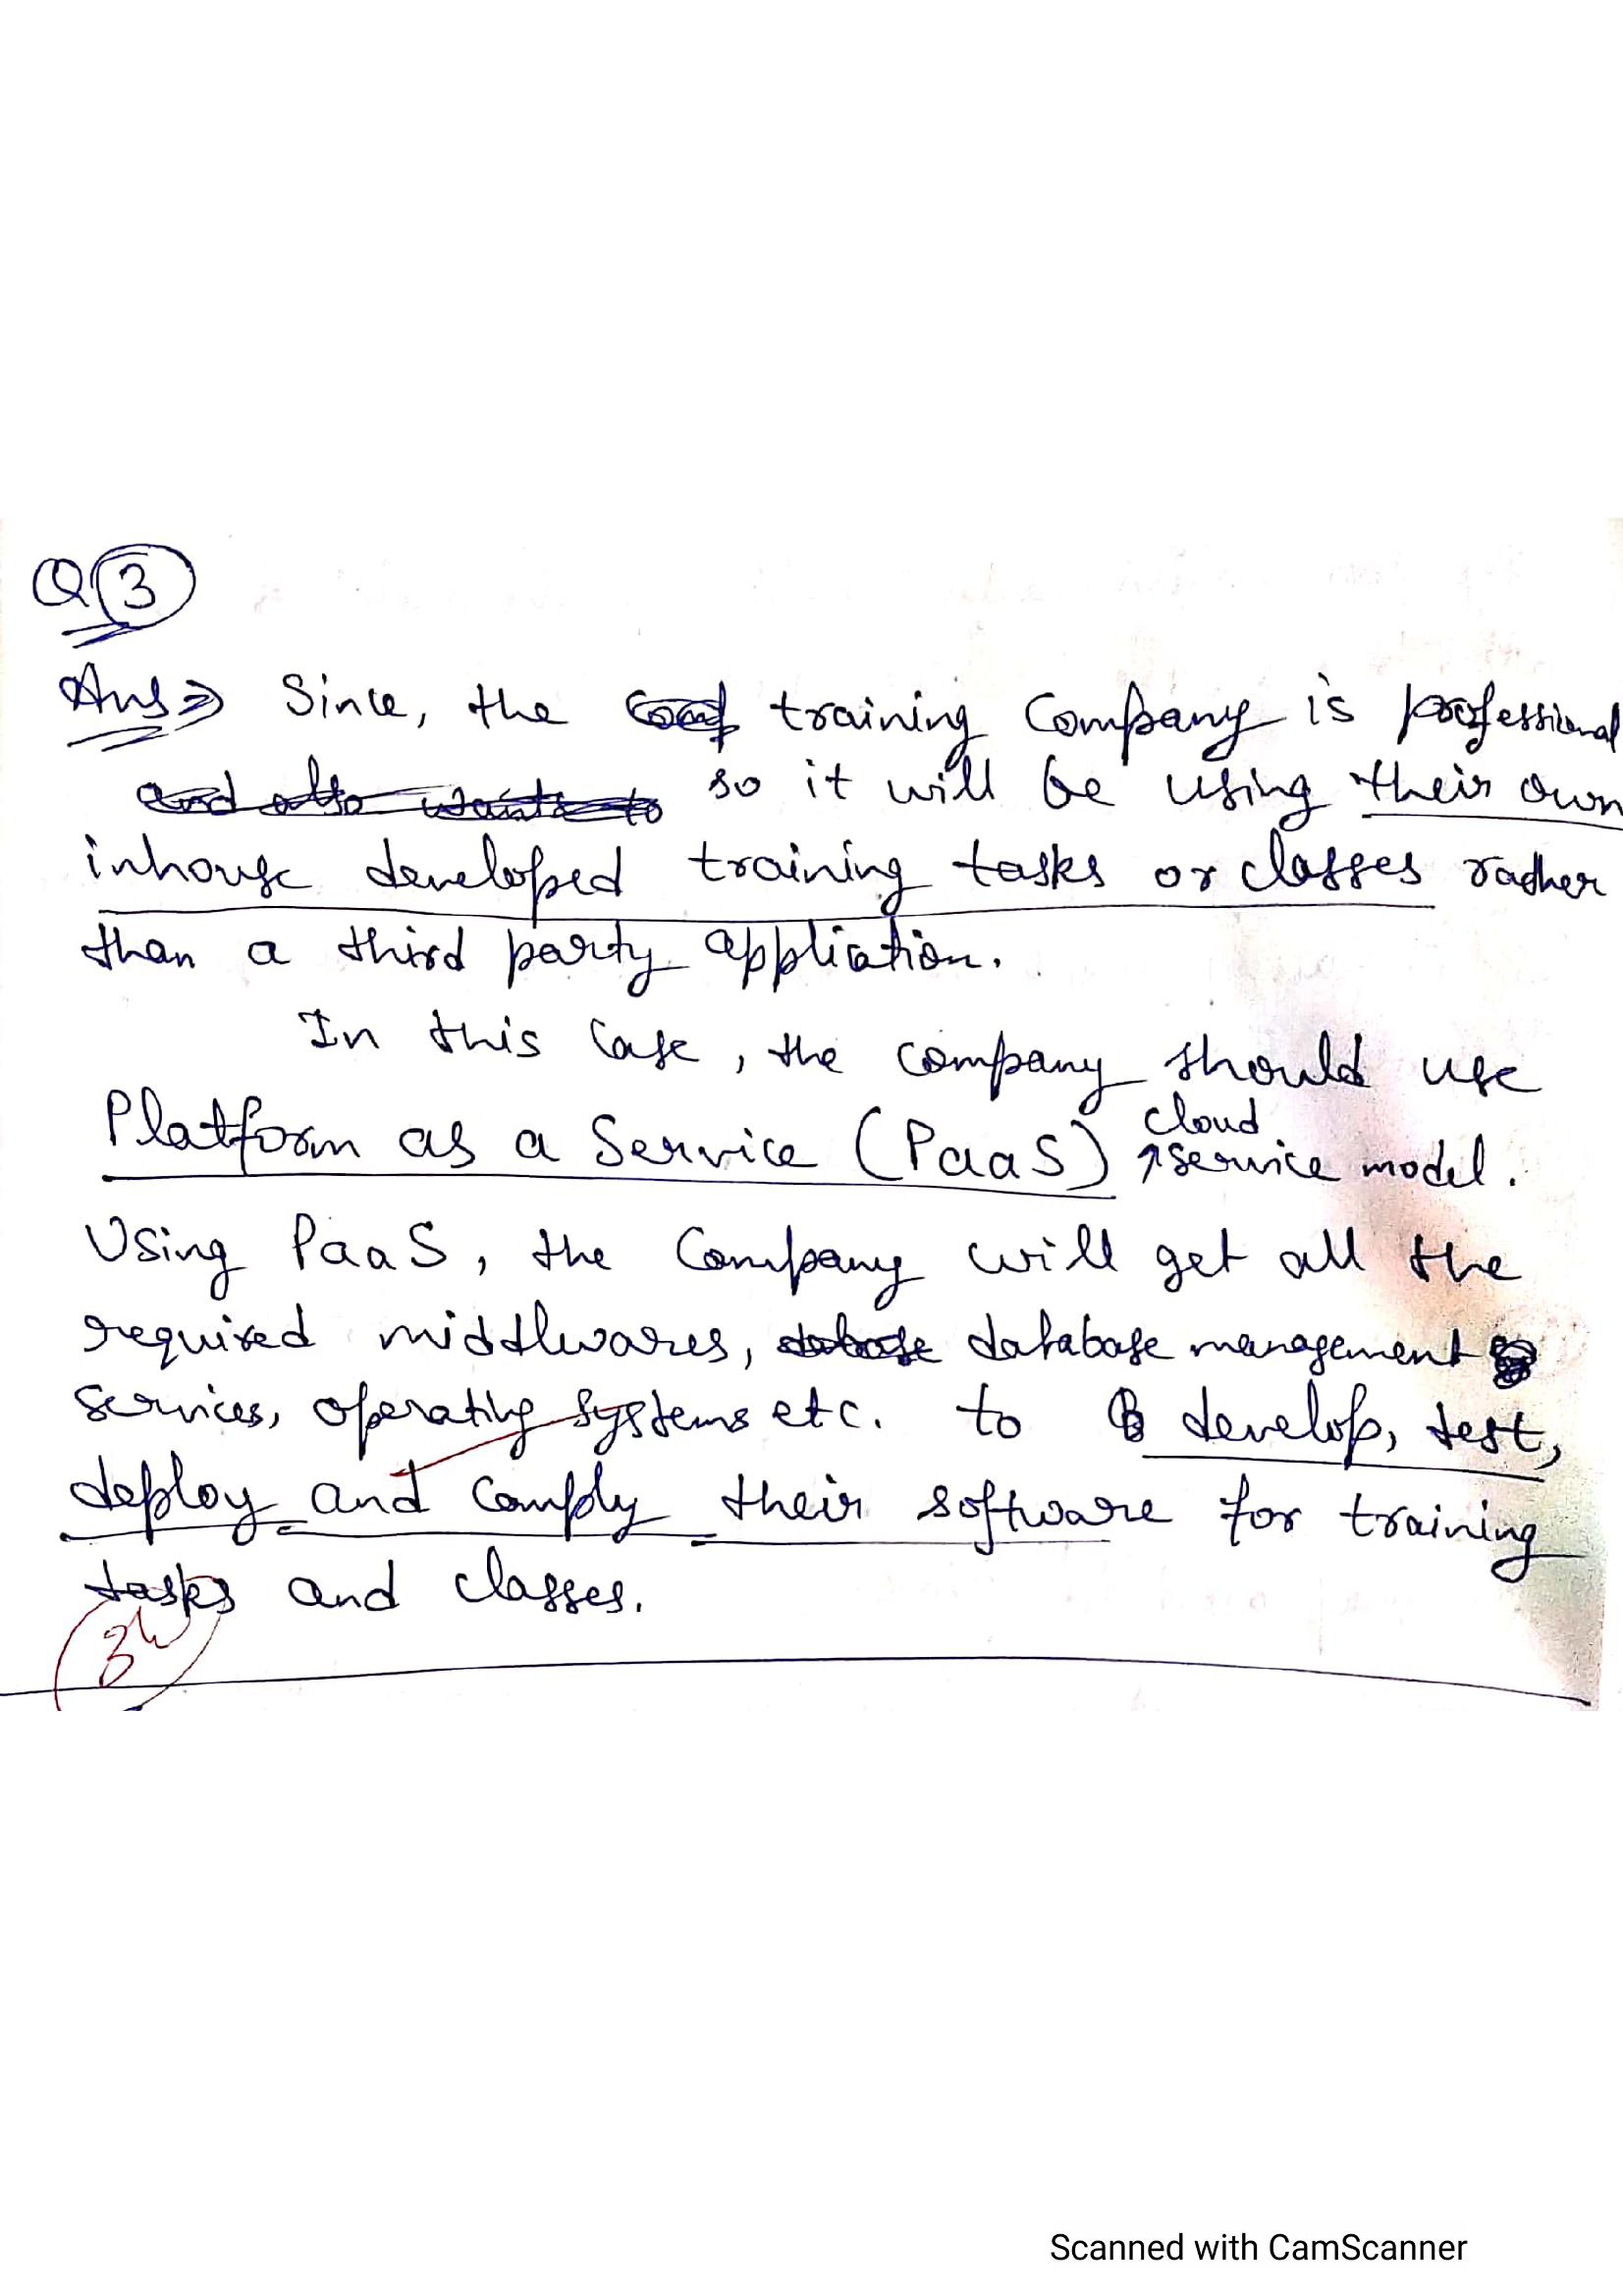 Q 3
Ans ⇒ Since, the training Company is professional
so it will be using their own
inhouse developed training tasks or classes rather
than a third party appliation.
In this Case, the company should use
Platform as a Service (PaaS) cloud service model.
Using PaaS, the Company will get all the
required middlwares, database management
services, operating systems etc. to develop, test,
deploy and comply their software for training
tasks and classes.
3
Scanned with CamScanner